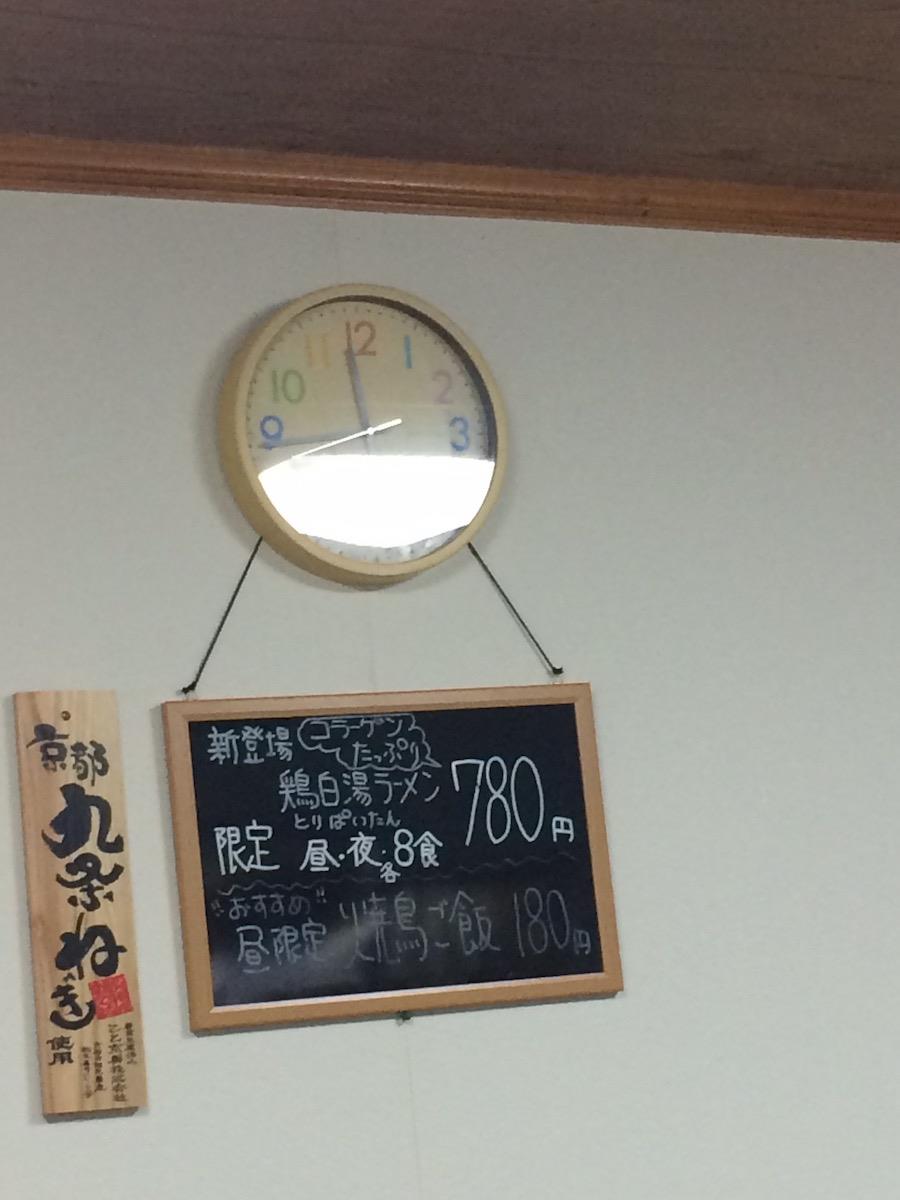 12
11
1
10
2
9
3
新登場
コラーゲン
たっぷり
鶏白湯ラーメン
とりぱいたん
780円
限定 昼・夜・各8食
おすすめ
昼限定 焼鳥ご飯 180円
京都
九条ねぎ
使用